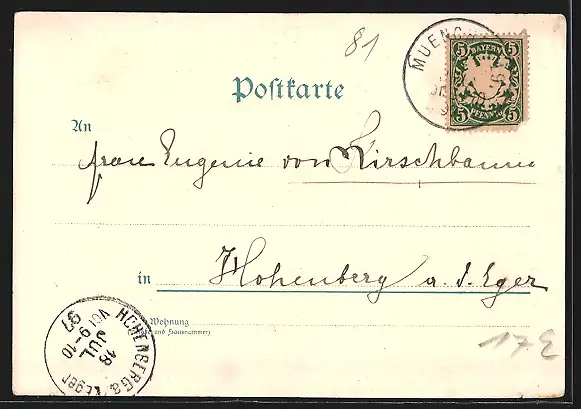 81
MUENC
5 BAYERN 5
5 PFENNIG 5
Postkarte
An
Frau Eugenie von Kirschbaum
in Hohenberg a. d. Eger
Wohnung
und Hausnummer)
HOHENBERG a. Eger
18
JUL
VOR 9-10
97
17 E